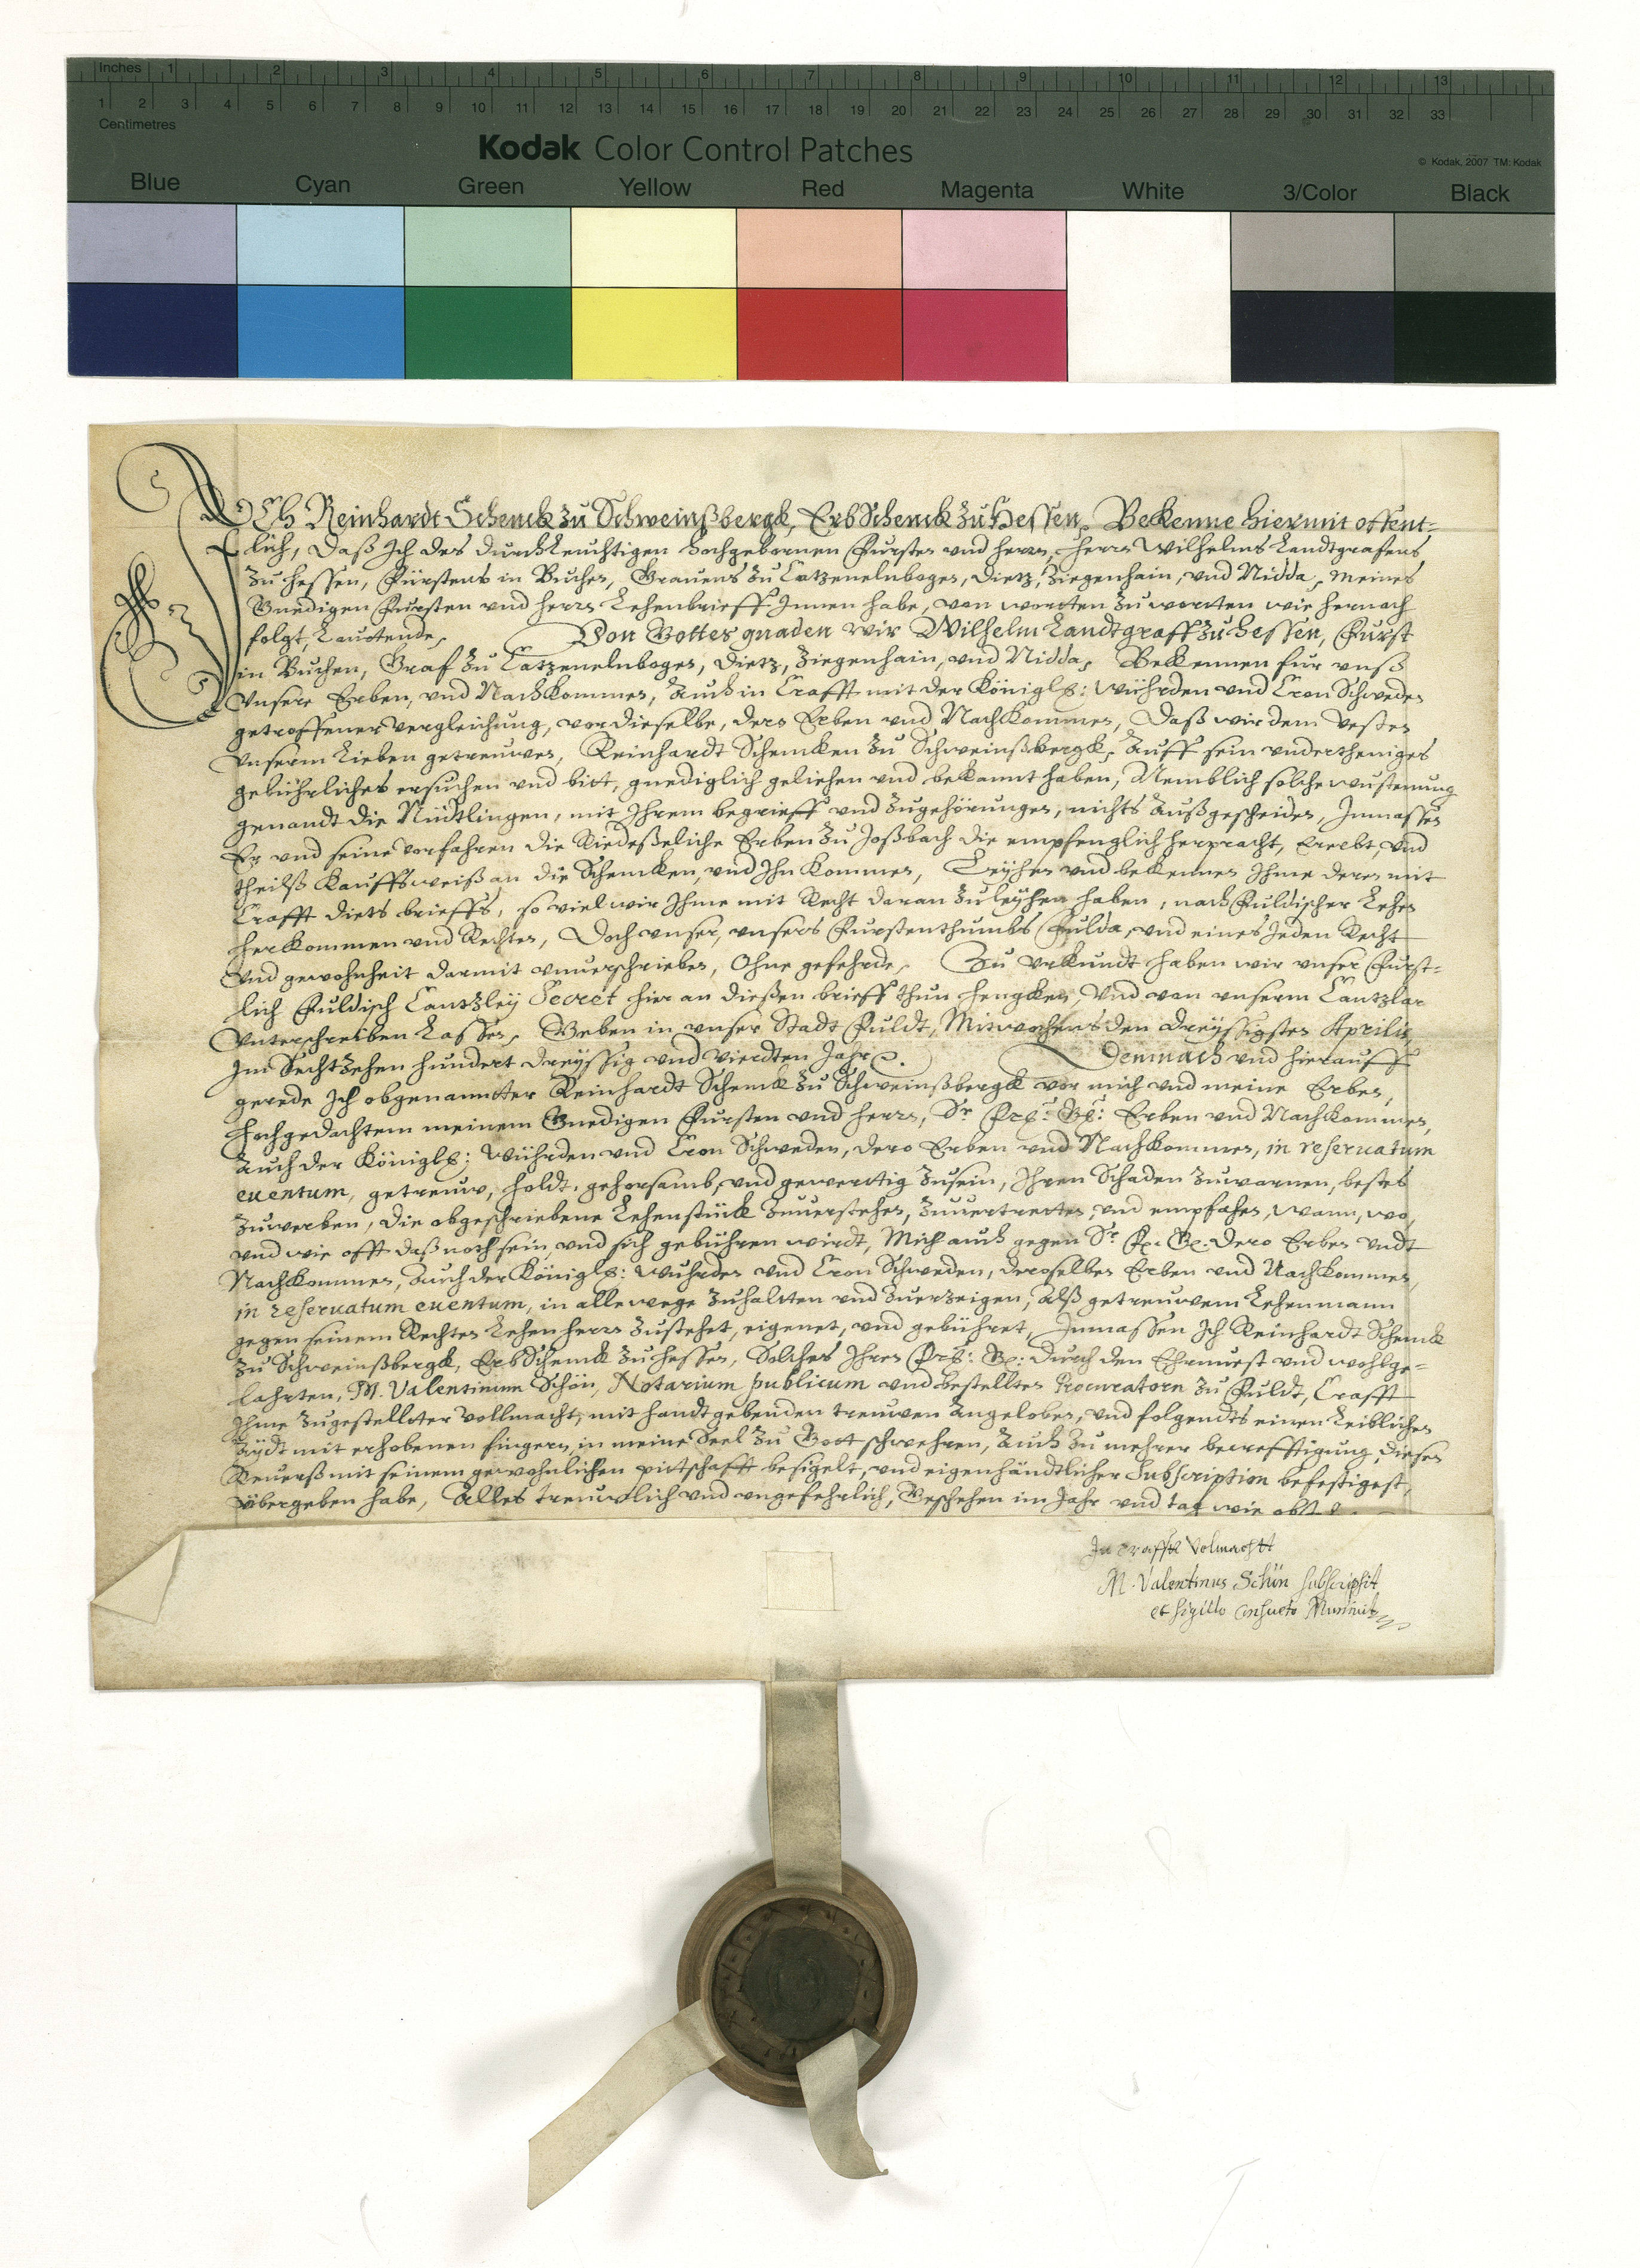 Inches 1 2 3 4 5 6 7 8 9 10 11 12 13
1 2 3 4 5 6 7 8 9 10 11 12 13 14 15 16 17 18 19 20 21 22 23 24 25 26 27 28 29 30 31 32 33
Centimetres
Kodak Color Control Patches
© Kodak, 2007 TM: Kodak
Blue Cyan Green Yellow Red Magenta White 3/Color Black
ICh Reinhardt Schenck zu Schweinßbergk, ErbSchenck zu Hessen, Bekenne hiermit offent-
lich, Daß Ich des Durchleuchtigen hochgebornen Fursten vnd herrn, herrn Wilhelms Landtgrafens
zu Hessen, Fürstens in Buchen, Grauens zu Catzenelnbogen, Dietz, Ziegenhain, vnd Nidda, meines
Gnedigen Fursten vnd herrn Lehenbrieff Innen habe, von wortten zu wortten wie hernach
folgt, Lauttende, Von Gottes gnaden wir Wilhelm Landtgraff zu Hessen, Furst
in Buchen, Graf zu Catzenelnbogen, Dietz, Ziegenhain, vnd Nidda, Bekennen fur vnß
Vnsere Erben, vnd Nachkommen, Auch in Crafft mit der Königl: Würden vnd Cron Schweden
getroffener vergleichung, vor dieselbe, dero Erben vnd Nachkommen, Daß wir dem Vesten
Vnserm Lieben getreuwen, Reinhardt Schencken zu Schweinßbergk, Auff sein vndertheniges
gebührliches ersuchen vnd bitt, gnediglich geliehen vnd bekannt haben, Nemblich solche wustenung
genandt die Nüdtlingen, mit Ihrem begrieff vnd zugehörungen, nichts Außgescheiden, Inmassen
Er vnd seine vorfahren die Riedeßeliche Erben zu Joßbach die empfenglich herpracht, Ererbt, vnd
theilß Kauffsweiß an die Schencken, vnd Ihn Kommen, Leyhen vnd bekennen Ihme deren mit
Crafft diets brieffs, so viel wir Ihme mit Recht daran zu leyhen haben, nach Fuldischer Lehen
herkommen vnd Rechten, Doch vnser, vnsers Furstenthumbs Fulda, vnd eines Jeden Recht
Vnd gewohnheit darmit vnuerschrieben, Ohne gefehrde, Zu vrkundt haben wir vnser Furst-
lich Fuldisch Cantzley Secret hier an diesen brieff thun hengken, Vnd von vnserm Cantzlar
Vnterschreiben Lassen, Geben in vnser Stadt Fuldt, Mitwochens den dreyssigsten Aprilis,
Im Sechtzehen hundert dreyssig vnd vierdten Jahr. Demnach vnd hierauff
gerede Ich obgenanntter Reinhardt Schenck zu Schweinßbergk vor mich vnd meine Erben,
hochgedachtem meinem Gnedigen Fursten vnd herrn, Sr Frl: Gn: Erben vnd Nachkommen,
Auch der Königl: Würden vnd Cron Schweden, dero Erben vnd Nachkommen, in reseruatum
euentum, getreuw, holdt, gehorsamb, vnd gewerttig zusein, Ihren Schaden zuwarnen, bestes
zuwerben, die obgeschriebene Lehenstück zuuerstehen, zuuertretten, vnd empfahen, wann, wo,
vnd wie offt daß noth sein, vnd sich gebühren wirdt, Mich auch gegen Sr F. Gn. Dero Erben vndt
Nachkommen, Auch der Königl: Würden vnd Cron Schweden, deroselben Erben vnd Nachkommen,
in reseruatum euentum, in allewege zuhaltten vnd zuerzeigen, Alß getreuwem Lehenmann
gegen seinem Rechten Lehenherrn zustehet, eigenet, vnd gebühret, Inmassen Ich Reinhardt Schenck
zu Schweinßbergk, ErbSchenck zu Hessen, Solches Ihren Frl: Gn: durch den Ehrnuest vnd wohlge-
lahrten, M. Valentinum Schön, Notarium publicum vnd bestellten Procuratorn zu Fuldt, Crafft
Ihme zugestellter Vollmacht, mit handtgebenden treuwen Angeloben, vnd folgendts einen Leiblichen
Aydt mit erhobenen fingern, in meine Seel zu Gott schwehren, Auch zu mehrer becrefftigung, dieses
Reuerß mit seinem gewohnlichen pittschafft besigelt, vnd eigenhändtlicher Subscription befestigest,
übergeben habe, Alles treuwlich vnd vngefehrlich, Geschehen im Jahr vnd tag wie
In crafft Volmacht
M. Valentinus Schön subscripsit
et sigillo consueto Muniuit